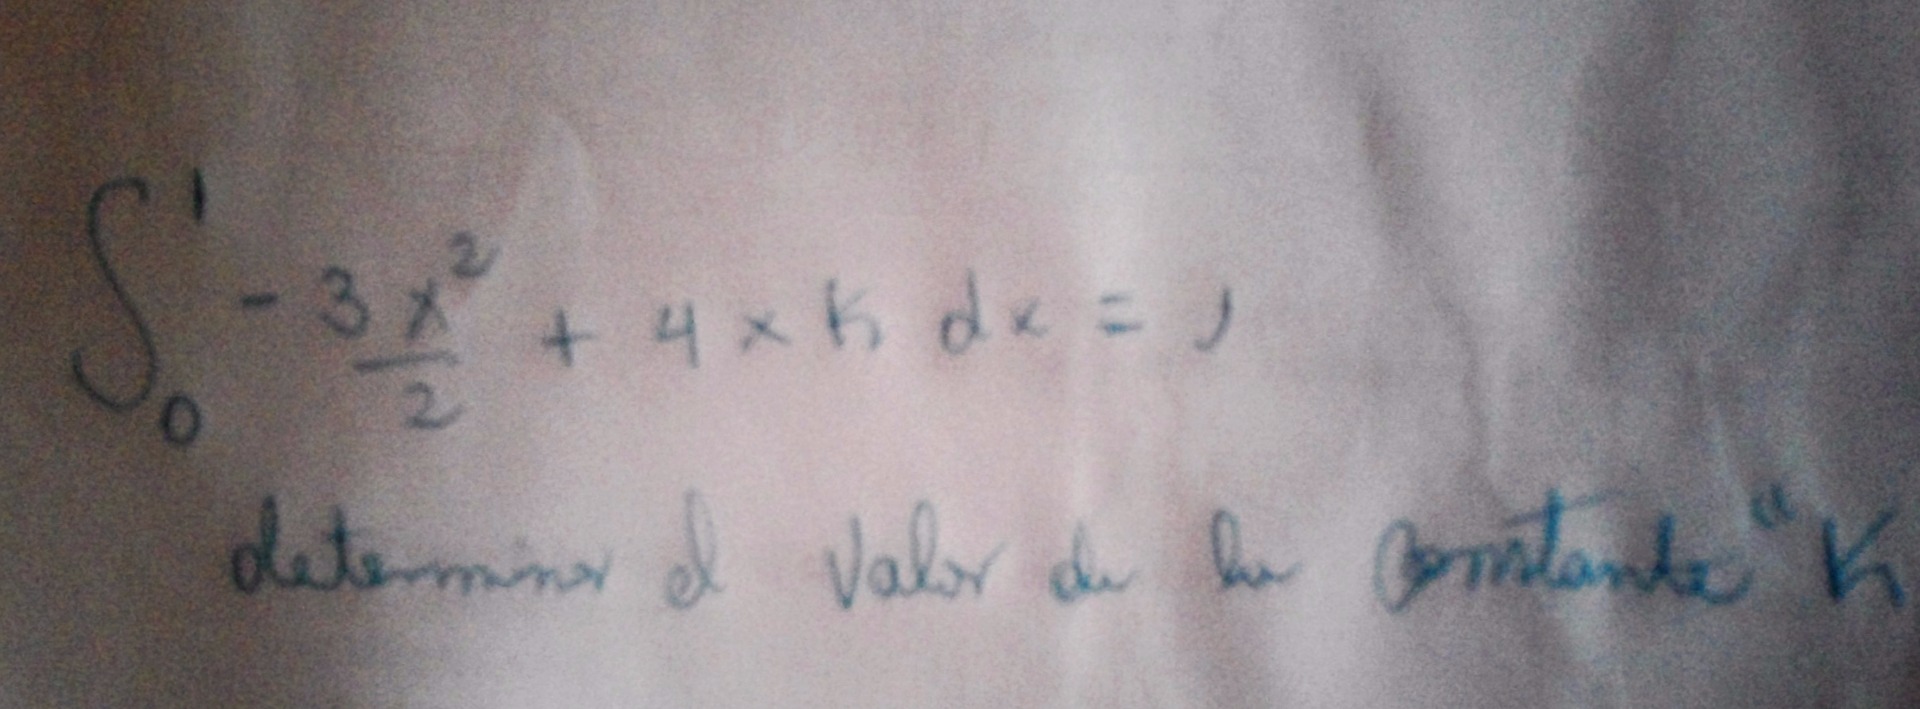 ∫₀¹ -3x²/2 + 4xk dx = 1
determinar el valor de la constante "K